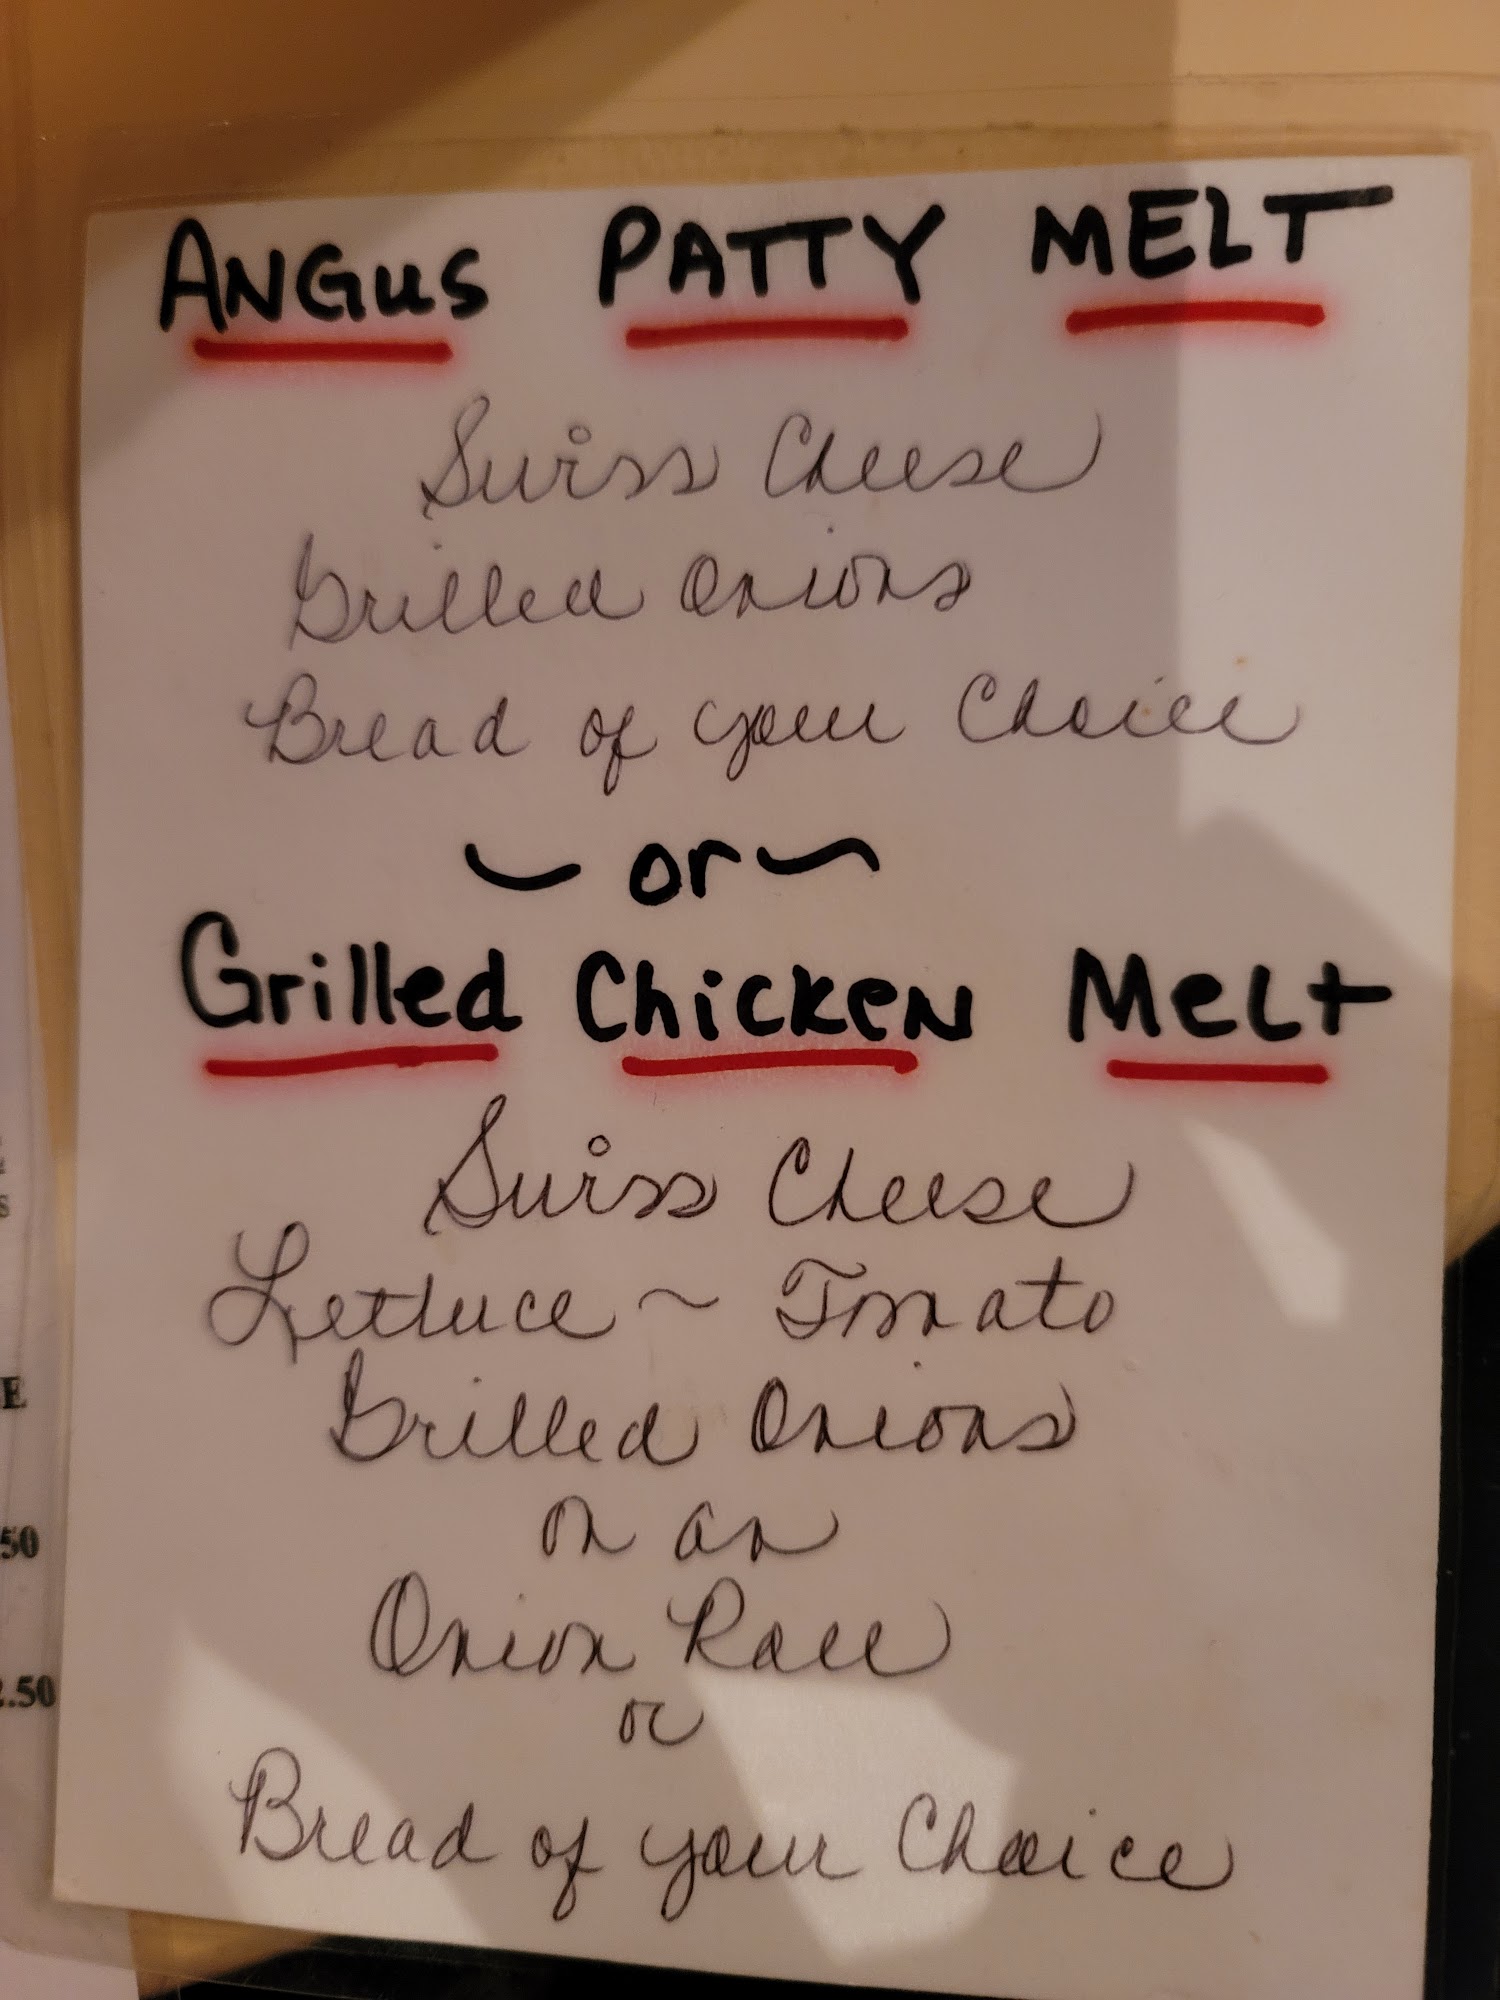 ANGUS PATTY MELT
Swiss Cheese
Grilled Onions
Bread of your Choice
~ or ~
Grilled Chicken Melt
Swiss Cheese
Lettuce ~ Tomato
Grilled Onions
on an
Onion Roll
or
Bread of your Choice
E
50
2.50